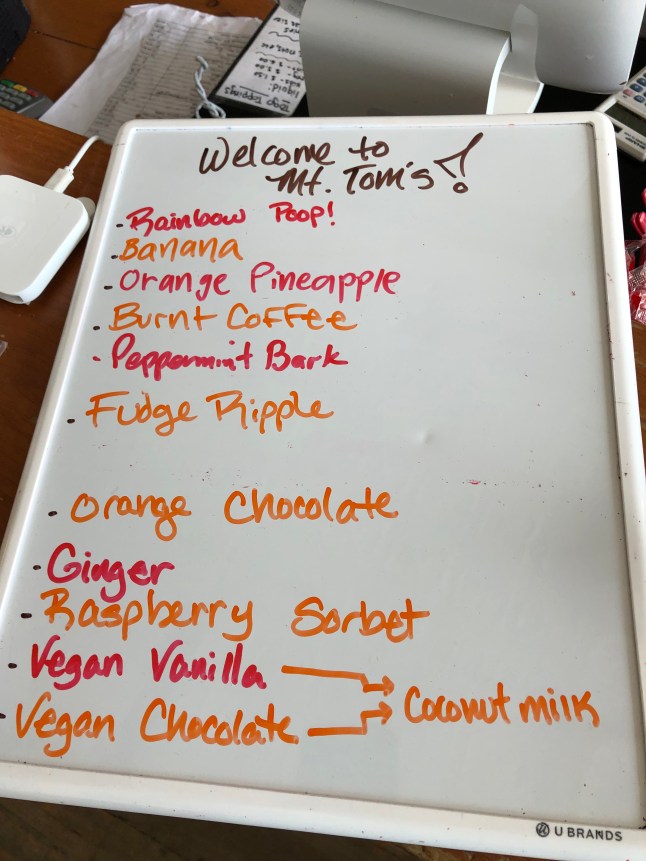 Welcome to
Mt. Tom's!
· Rainbow Poop!
· Banana
· Orange Pineapple
· Burnt Coffee
· Peppermint Bark
· Fudge Ripple
· Orange Chocolate
· Ginger
· Raspberry Sorbet
· Vegan Vanilla
· Vegan Chocolate
Coconut milk
U BRANDS